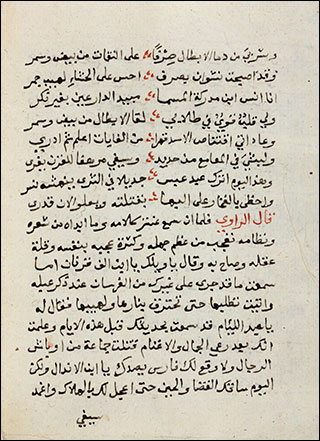 وشربي من دما الابطال صرفا على النقات من بيض وسمر
وقد اصبحت نشوان بصرف احس على الحشاء لهيب جمر
انا انس ابن مدركة المسما مبيد الدارعين بغير نكر
ولي قلب قوي في طلابي لقا الابطال من بيض وسمر
وعادتي اقتناص الاسد قهرا من الغابات اعلم ثم ادري
وليثي في المعامع من حديد وسيفي مرهفا للعرب يفري
وهذا اليوم اترك عبد عبس جديلا في الثرى ينهشه نسر
واحظى بالفخار على البها بقتلته ويعلو الان قدري
قال الراوي فلما ان سمع عنتر كلامه وما ابداه من شعره
ونظامه تعجب من عظم جهله وكثرة عجبه بنفسه وقلة
عقله وصاح به وقال يا ويلك يا ابن الف قرنان اما
سمعت ما قد جرى على غيرك من الفرسان عند ذكر عبله
واتيت تطلبها حتى تحترق بنارها ولهيبها فقال له
يا عبد اللئام قد سمعت بحديثك قبل هذه الايام وعلمت
انك بعد رعي الجمال والاغنام قتلت جماعة من اوباش
الرجال ولا وقع لك فارس يصدك يا ابن الاندال ولكن
اليوم ساقك القضا والحين حتى اعجل لك بالهلاك واغمد
سيفي